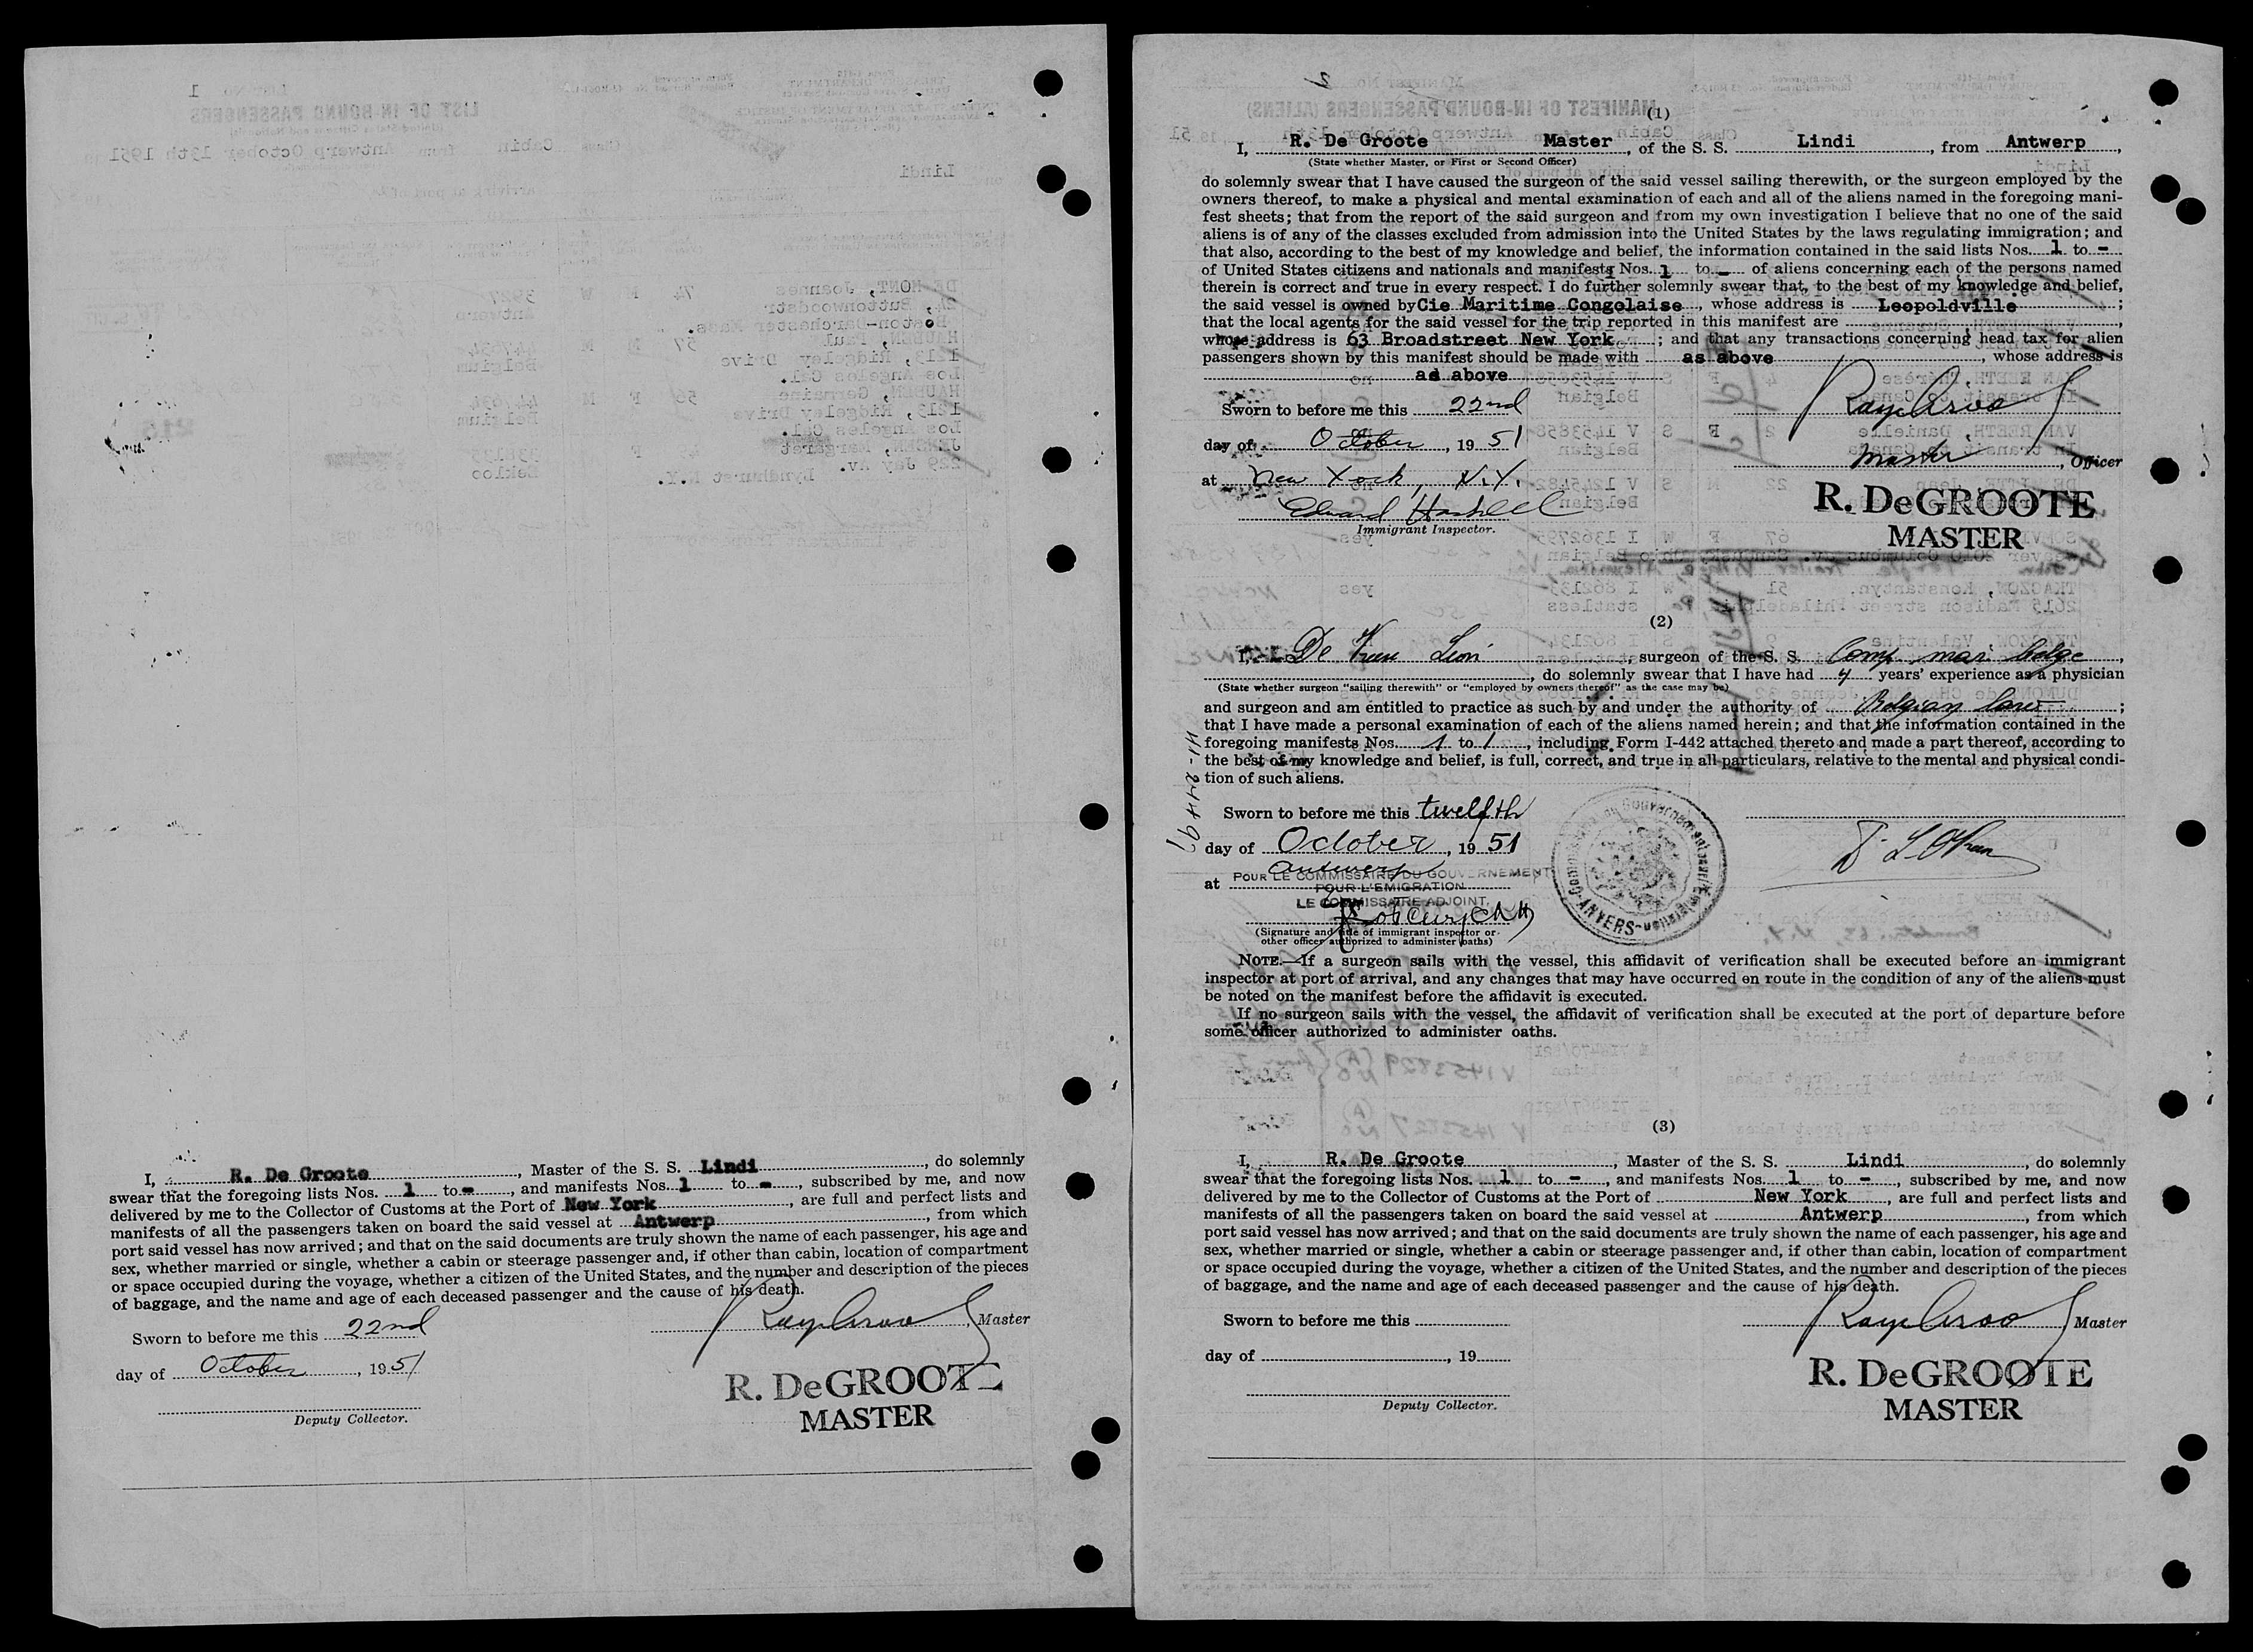 I, R. De Groote, Master of the S. S. Lindi, do solemnly
swear that the foregoing lists Nos. 1 to -, and manifests Nos. 1 to -, subscribed by me, and now
delivered by me to the Collector of Customs at the Port of New York, are full and perfect lists and
manifests of all the passengers taken on board the said vessel at Antwerp, from which
port said vessel has now arrived; and that on the said documents are truly shown the name of each passenger, his age and
sex, whether married or single, whether a cabin or steerage passenger and, if other than cabin, location of compartment
or space occupied during the voyage, whether a citizen of the United States, and the number and description of the pieces
of baggage, and the name and age of each deceased passenger and the cause of his death.
Sworn to before me this 22nd
, Master
day of October, 1951
R. DeGROOTE
MASTER
Deputy Collector.
(1)
I, R. De Groote Master, of the S. S. Lindi, from Antwerp,
(State whether Master, or First or Second Officer)
do solemnly swear that I have caused the surgeon of the said vessel sailing therewith, or the surgeon employed by the
owners thereof, to make a physical and mental examination of each and all of the aliens named in the foregoing mani-
fest sheets; that from the report of the said surgeon and from my own investigation I believe that no one of the said
aliens is of any of the classes excluded from admission into the United States by the laws regulating immigration; and
that also, according to the best of my knowledge and belief, the information contained in the said lists Nos. 1 to -
of United States citizens and nationals and manifests Nos. 1 to - of aliens concerning each of the persons named
therein is correct and true in every respect. I do further solemnly swear that, to the best of my knowledge and belief,
the said vessel is owned by Cie Maritime Congolaise, whose address is Leopoldville;
that the local agents for the said vessel for the trip reported in this manifest are ,
whose address is 63 Broadstreet New York; and that any transactions concerning head tax for alien
passengers shown by this manifest should be made with as above, whose address is
as above
Sworn to before me this 22nd
day of October, 1951
Master, Officer
at New York, N.Y.
R. DeGROOTE
MASTER
Edward
Immigrant Inspector.
(2)
I, De, surgeon of the S. S. Comp mar belge,
, do solemnly swear that I have had 4 years' experience as a physician
(State whether surgeon "sailing therewith" or "employed by owners thereof" as the case may be)
and surgeon and am entitled to practice as such by and under the authority of Belgian laws;
that I have made a personal examination of each of the aliens named herein; and that the information contained in the
foregoing manifests Nos. 1 to 1, including Form I-442 attached thereto and made a part thereof, according to
the best of my knowledge and belief, is full, correct, and true in all particulars, relative to the mental and physical condi-
tion of such aliens.
Sworn to before me this twelfth
day of October, 1951
at Antwerp
POUR LE COMMISSAIRE DU GOUVERNEMENT
POUR L'EMIGRATION
LE COMMISSAIRE ADJOINT,
(Signature and title of immigrant inspector or
other officer authorized to administer oaths)
NOTE.—If a surgeon sails with the vessel, this affidavit of verification shall be executed before an immigrant
inspector at port of arrival, and any changes that may have occurred en route in the condition of any of the aliens must
be noted on the manifest before the affidavit is executed.
If no surgeon sails with the vessel, the affidavit of verification shall be executed at the port of departure before
some officer authorized to administer oaths.
(3)
I, R. De Groote, Master of the S. S. Lindi, do solemnly
swear that the foregoing lists Nos. 1 to -, and manifests Nos. 1 to -, subscribed by me, and now
delivered by me to the Collector of Customs at the Port of New York, are full and perfect lists and
manifests of all the passengers taken on board the said vessel at Antwerp, from which
port said vessel has now arrived; and that on the said documents are truly shown the name of each passenger, his age and
sex, whether married or single, whether a cabin or steerage passenger and, if other than cabin, location of compartment
or space occupied during the voyage, whether a citizen of the United States, and the number and description of the pieces
of baggage, and the name and age of each deceased passenger and the cause of his death.
Sworn to before me this
, Master
day of , 19
R. DeGROOTE
MASTER
Deputy Collector.